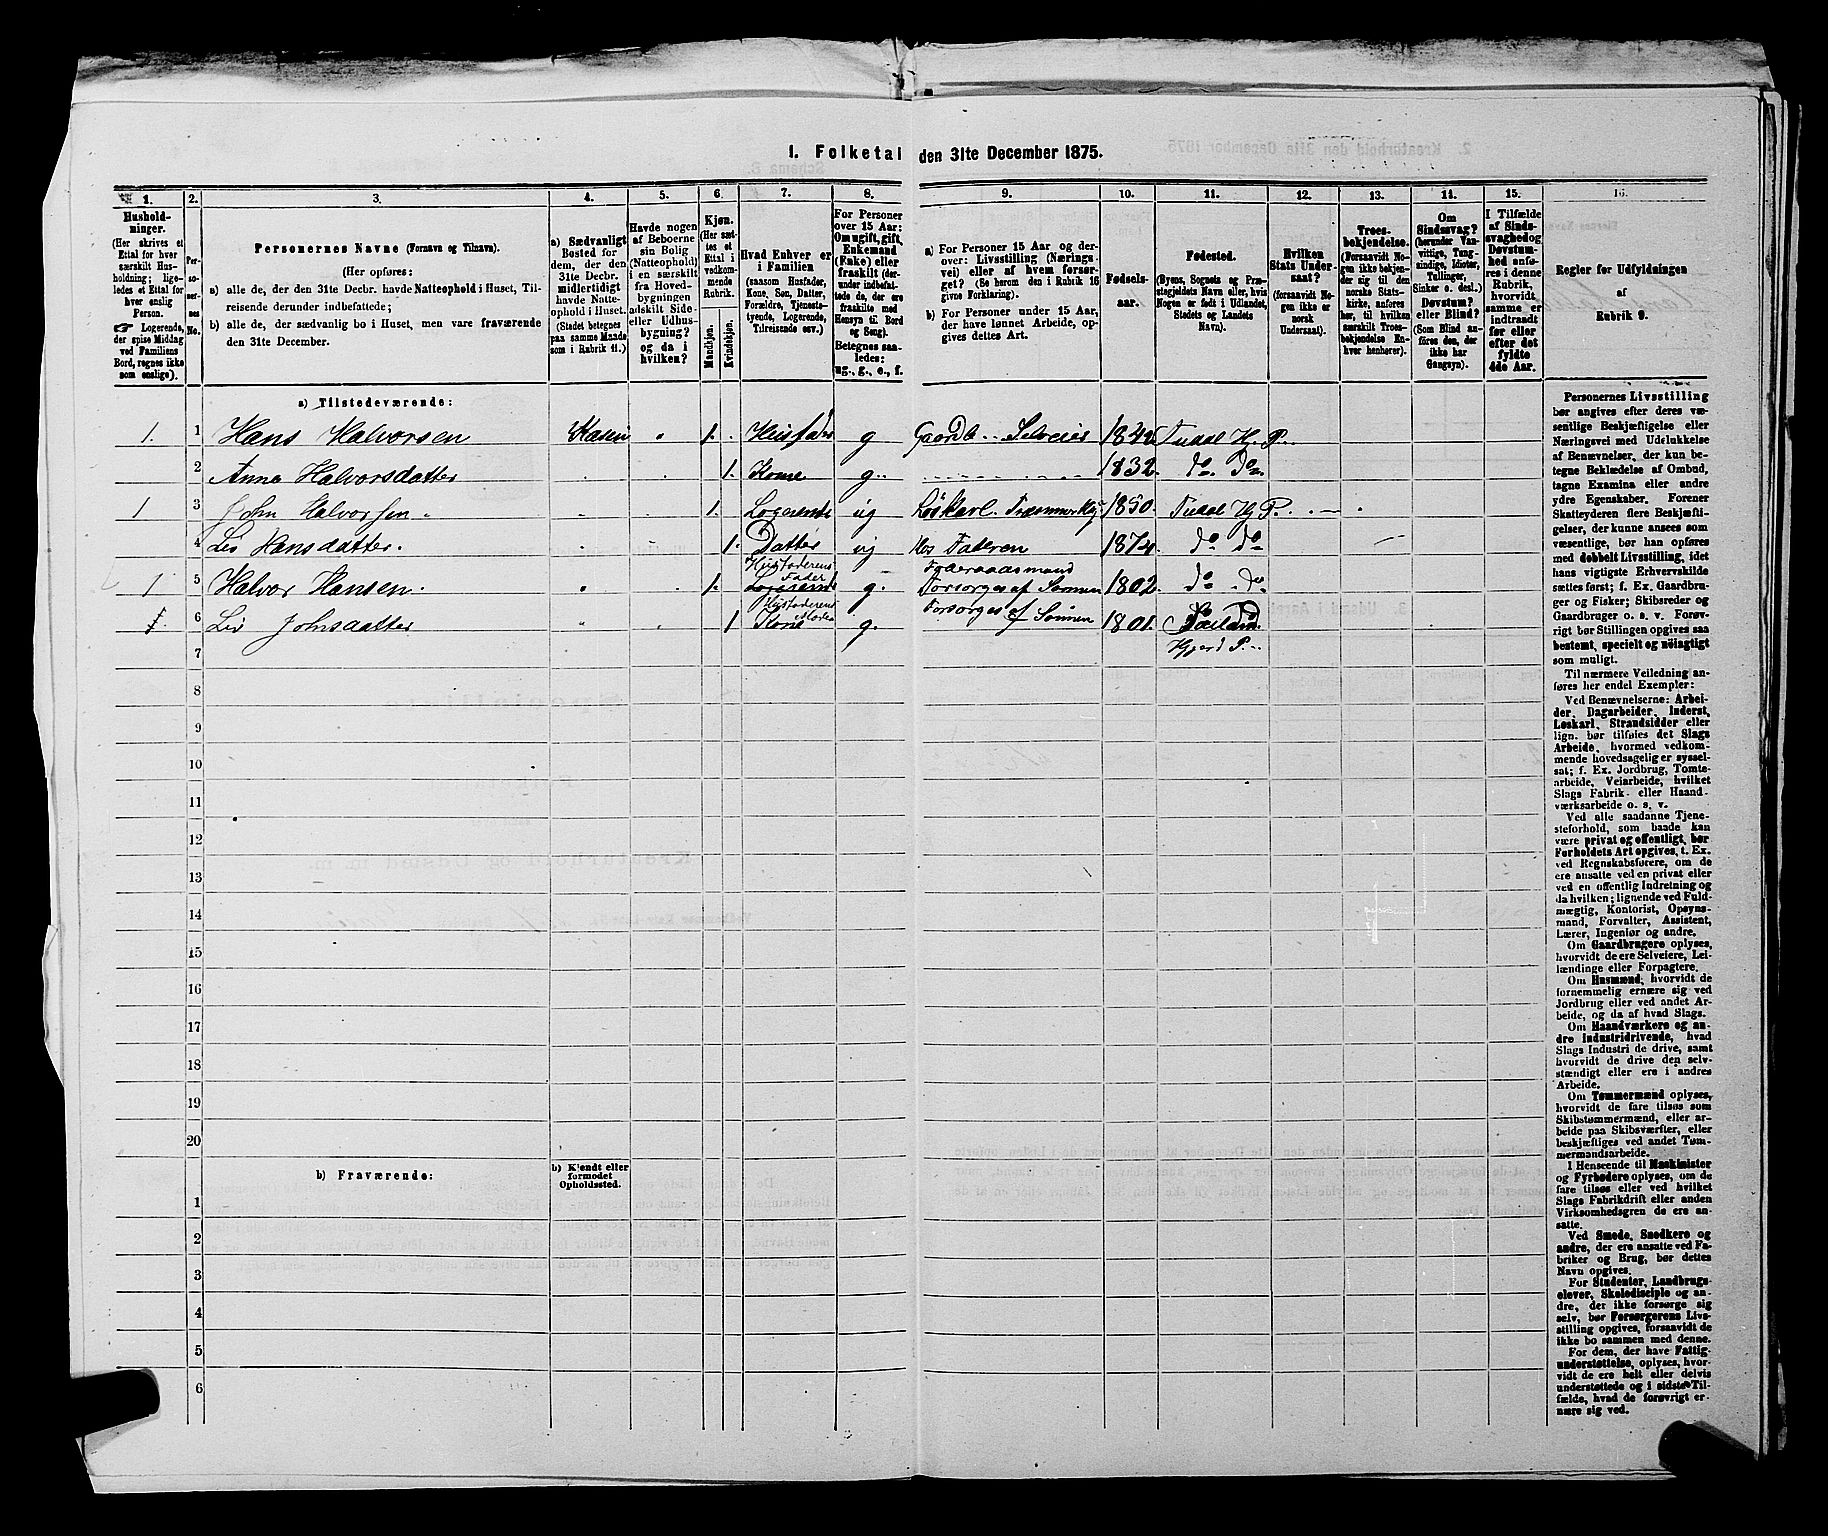 1. Folketal den 31te December 1875.
1.
Hushold-
ninger.
(Her skrives et
Ettal for hver
særskilt Hus-
holdning; lige-
ledes et Ettal for
hver enslig
Person.
☞ Logerende,
der spise Middag
ved Familiens
Bord, regnes ikke
som enslige).
2.
Per-
so-
ner-
nes
No.
3.
Personernes Navne (Fornavn og Tilnavn).
(Her opføres:
a) alle de, der den 31te Decbr. havde Natteophold i Huset, Til-
reisende derunder indbefattede;
b) alle de, der sædvanlig bo i Huset, men vare fraværende
den 31te Decbr.
4.
a) Sædvanligt
Bosted for
dem, der den
31te Decbr.
midlertidigt
havde Natte-
ophold i Huset.
(Stedet betegnes
paa samme Maade
som i Rubrik 11.)
5.
Havde nogen
af Beboerne
sin Bolig
(Natteophold)
i en særskilt
fra Hoved-
bygningen
adskilt Side-
eller Udhus-
bygning?
og da i
hvilken?
6.
Kjøn.
(Her sæt-
tes et
Ettal i
vedkom-
mende
Rubrik.
Mandkjøn.
Kvindekjøn.
7.
Hvad Enhver er
i Familien
(saasom Husfader,
Kone, Søn, Datter,
Forældre, Tjenest-
tyende, Logerende,
Tilreisende osv.)
8.
For Personer
over 15 Aar:
Om ugift, gift,
Enkemand
(Enke) eller
fraskilt (der-
under indbefat-
tede de, der ere
fraskilte med
Hensyn til Bord
og Seng).
Betegnes saa-
ledes:
ug., g., e., f.
9.
a) For Personer 15 Aar og der-
over: Livsstilling (Nærings-
vei) eller af hvem forsør-
get? (Se herom den i Rubrik 16
givne Forklaring).
b) For Personer under 15 Aar,
der have lønnet Arbeide, op-
gives dettes Art.
10.
Fødsels-
aar.
11.
Fødested.
(Byens, Sognets og Præ-
stegjeldets Navn eller, hvis
Nogen er født i Udlandet,
Stedets og Landets
Navn).
12.
Hvilken
Stats Under-
saat?
(forsaavidt No-
gen ikke er
norsk
Undersaat).
13.
Troes-
bekjendelse.
(Forsaavidt No-
gen ikke bekjen-
der sig til den
norske Stats-
kirke, anføres
her, til hvilken
særskilt Troes-
bekjendelse En-
hver henhører).
14.
Om
Sindssvag?
(herunder Van-
vittige, Tung-
sindige, Idioter,
Tullinger,
Sinker o. desl.)
Døvstum?
eller Blind?
(Som Blind an-
føres den, der
ikke har
Gangsyn).
15.
I Tilfælde
af Sinds-
svaghed og
Døvstum-
hed anfø-
res i denne
Rubrik,
hvorvidt
samme er
indtraadt
før eller
efter det
fyldte
4de Aar.
16.
Regler for Udfyldningen
af
Rubrik 9.
a) Tilstedeværende:
1. 1 Hans Halvorsen 1. Husfader g Gaardb. Selveier 1842 Tudal H. P.
2 Anna Halvorsdatter 1. Kone g. 1832. do. do.
1 3 John Halvorsen 1. Logerende ug Løskarl. 1850. Tudal Hj P.
4 Liv Hansdatter. 1. Datter ug Hos Faderen 1874 do do
Husfaderens Fader Føderaadsmand
1 5 Halvor Hansen. 1. Logerende g. Forsørges af Sønnen 1802. do do
Husfaderens Moder
1. 6 Liv Johnsdatter 1 Kone g. Forsørges af Sønnen 1801.
7 Hjerd P.
8
9
10
11
12
13
14
15
16
17
18
19
20
b) Fraværende:
b) Kjendt eller
formodet
Opholdssted.
1
2
3
4
5
6
Personernes Livsstilling
bør angives efter deres væ-
sentlige Beskjæftigelse eller
Næringsvei med Udelukkelse
af Benævnelser, der kun be-
tegne Beklædelse af Ombud,
tagne Examina eller andre
ydre Egenskaber. Forener
Skatteyderen flere Beskjæfti-
gelser, der kunne ansees som
væsentlige, bør han opføres
med dobbelt Livsstilling, idet
hans vigtigste Erhvervskilde
sættes først; f. Ex. Gaardbru-
ger og Fisker; Skibsreder og
Gaardbruger o. s. v. Forøv-
rigt bør Stillingen opgives saa
bestemt, specielt og nøiagtigt
som muligt.
Til nærmere Veiledning an-
føres her endel Exempler:
Ved Benævnelserne: Arbei-
der, Dagarbeider, Inderst,
Løskarl, Strandsidder eller
lign. bør tilføies det Slags
Arbeide, hvormed vedkom-
mende hovedsagelig er syssel-
sat; f. Ex. Jordbrug, Tomte-
arbeide, Veiarbeide, hvilket
Slags Fabrik- eller Haand-
værksarbeide o. s. v.
Ved alle saadanne Tjene-
steforhold, som baade kan
være privat og offentlig, bør
Forholdets Art opgives, t. Ex.
ved Regnskabsførere, om de
ere ansatte ved en privat eller
ved en offentlig Indretning og
da hvilken; lignende ved Fuld-
mægtig, Kontorist, Opsyns-
mand, Forvalter, Assistent,
Lærer, Ingeniør og andre.
Om Gaardbrugere oplyses,
hvorvidt de ere Selveiere, Lei-
lændinge eller Forpagtere.
Om Husmænd, hvorvidt de
fornemmelig ernære sig ved
Jordbrug eller ved andet Ar-
beide, og da af hvad Slags.
Om Haandværkere og an-
dre Industridrivende, hvad
Slags Industri de drive, samt
hvorvidt de drive den selv-
stændigt eller ere i andres
Arbeide.
Om Tømmermænd oplyses,
hvorvidt de fare tilsøs som
Skibstømmermænd, eller ar-
beide paa Skibsværfter, eller
beskjæftiges ved andet Tøm-
mermandsarbeide.
I Henseende til Maskinister
og Fyrbødere oplyses, om de
fare tilsøs eller ved hvilket
Slags Fabrikdrift eller anden
Virksomhedsgren de ere an-
satte.
Ved Smede, Snedkere og
andre, der ere ansatte ved Fa-
briker og Brug, bør dettes
Navn opgives.
For Studenter, Landbrugs-
elever, Skoledisciple og an-
dre, der ikke forsørge sig
selv, bør Forsørgerens Livs-
stilling opgives, forsaavidt de
ikke bo sammen med denne.
For dem, der have Fattig-
understøttelse, oplyses, hvor-
vidt de ere helt eller delvis
understøttede og i sidste Til-
fælde, hvad de forøvrigt er-
nære sig ved.